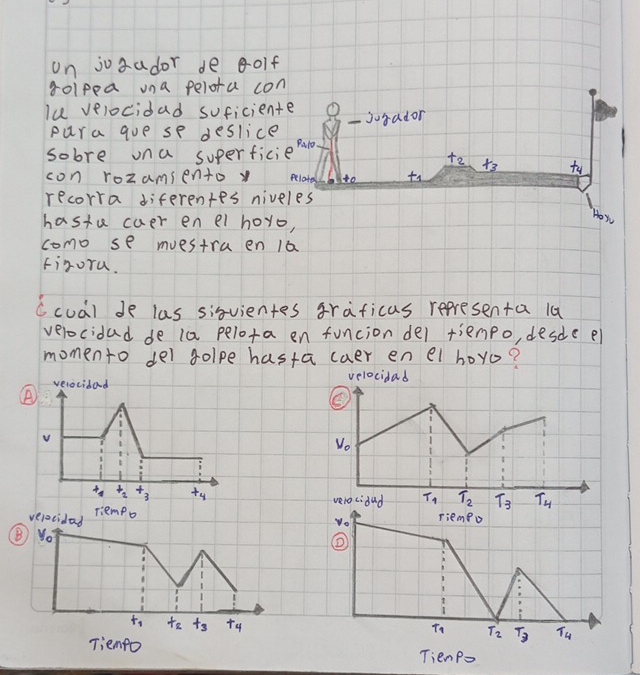 un jugador de Golf
golpea una pelota con
la velocidad suficiente
para que se deslice
sobre una superficie
con rozamiento y
recorra diferentes niveles
hasta caer en el hoyo,
como se muestra en la
figura.
jugador
Palo
Pelota
t0
t1
t2
t3
t4
Hoyo
¿cuál de las siguientes gráficas representa la
velocidad de la pelota en funcion del tiempo, desde el
momento del golpe hasta caer en el hoyo?
A
velocidad
v
t1 t2 t3 t4
Tiempo
C
velocidad
Vo
T1 T2 T3 T4
Tiempo
B
velocidad
Vo
t1 t2 t3 t4
Tiempo
D
velocidad
Vo
T1 T2 T3 T4
Tiempo